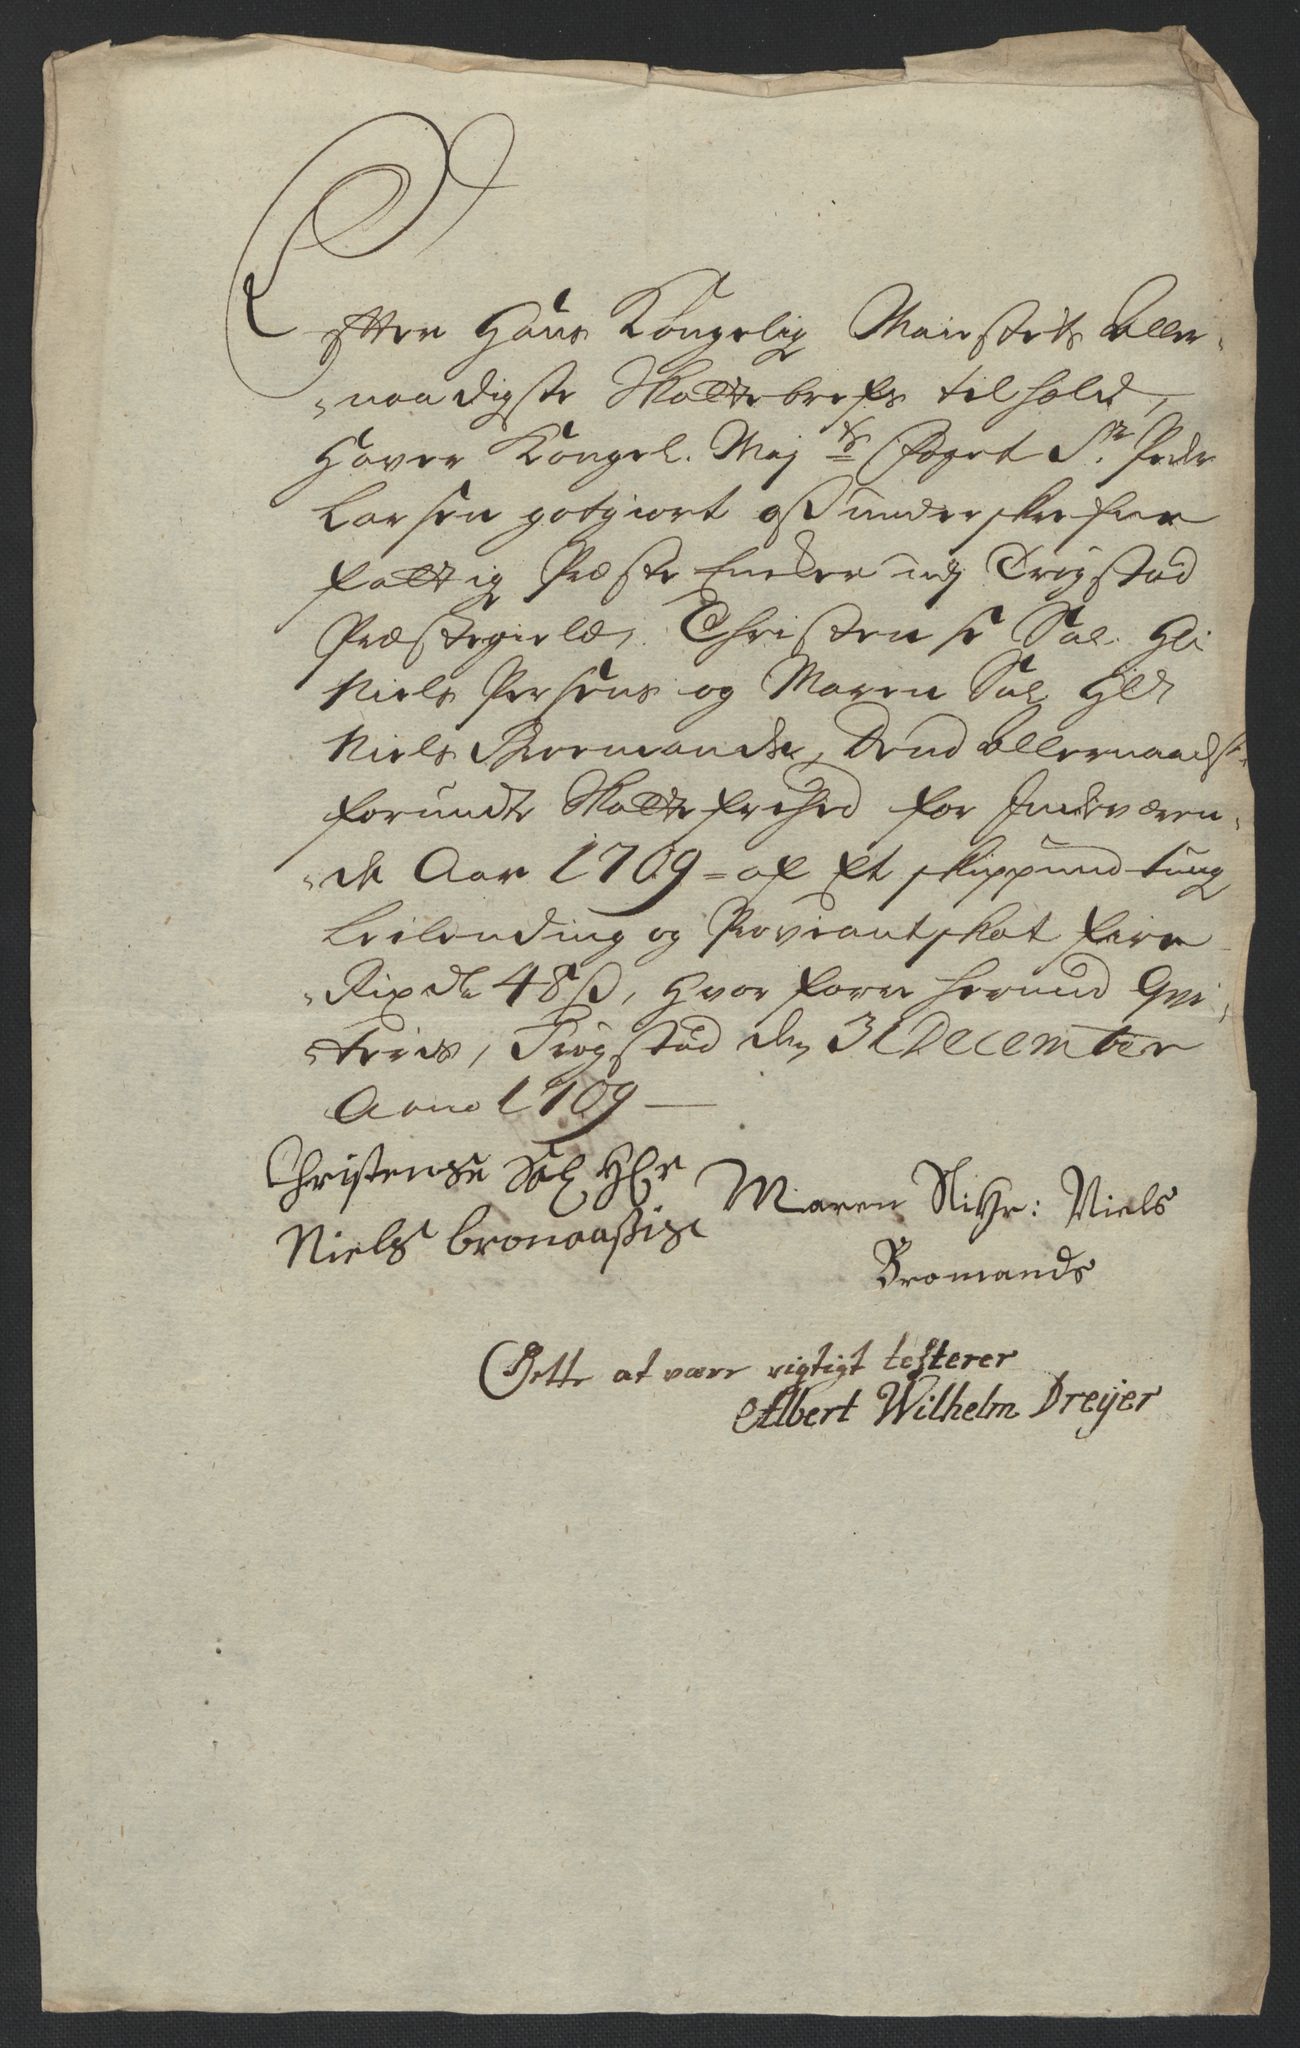 Efter Hans Kongelig Maiestets Aller-
-naadigste Skattebrefs tilhold,
Haver Kongel. Maj ts foget Sr. Peder
Larsen gotgiort os underskrefne
fattig Præste Encker udj Trøgstad
Præstegield, Christense Sal. Hr
Niels Persens og Maren Sal. Hr
Niels Bromands, Dend Allernaadst-
forundte Skatte frihed for Indeværen-
-de Aar 1709 = af Et skippund tung
Leilending og Proviant skat fire
-Rixdr 48 ß, hvor forre herved Qvi-
-teris, Trøgstad den 31 December
Anno 1709 —
Christense Sal Hr
Niels
Maren Hr: Niels
Bromands
Dette at være rigtigt testerer
Albert Wilhelm Dreÿer